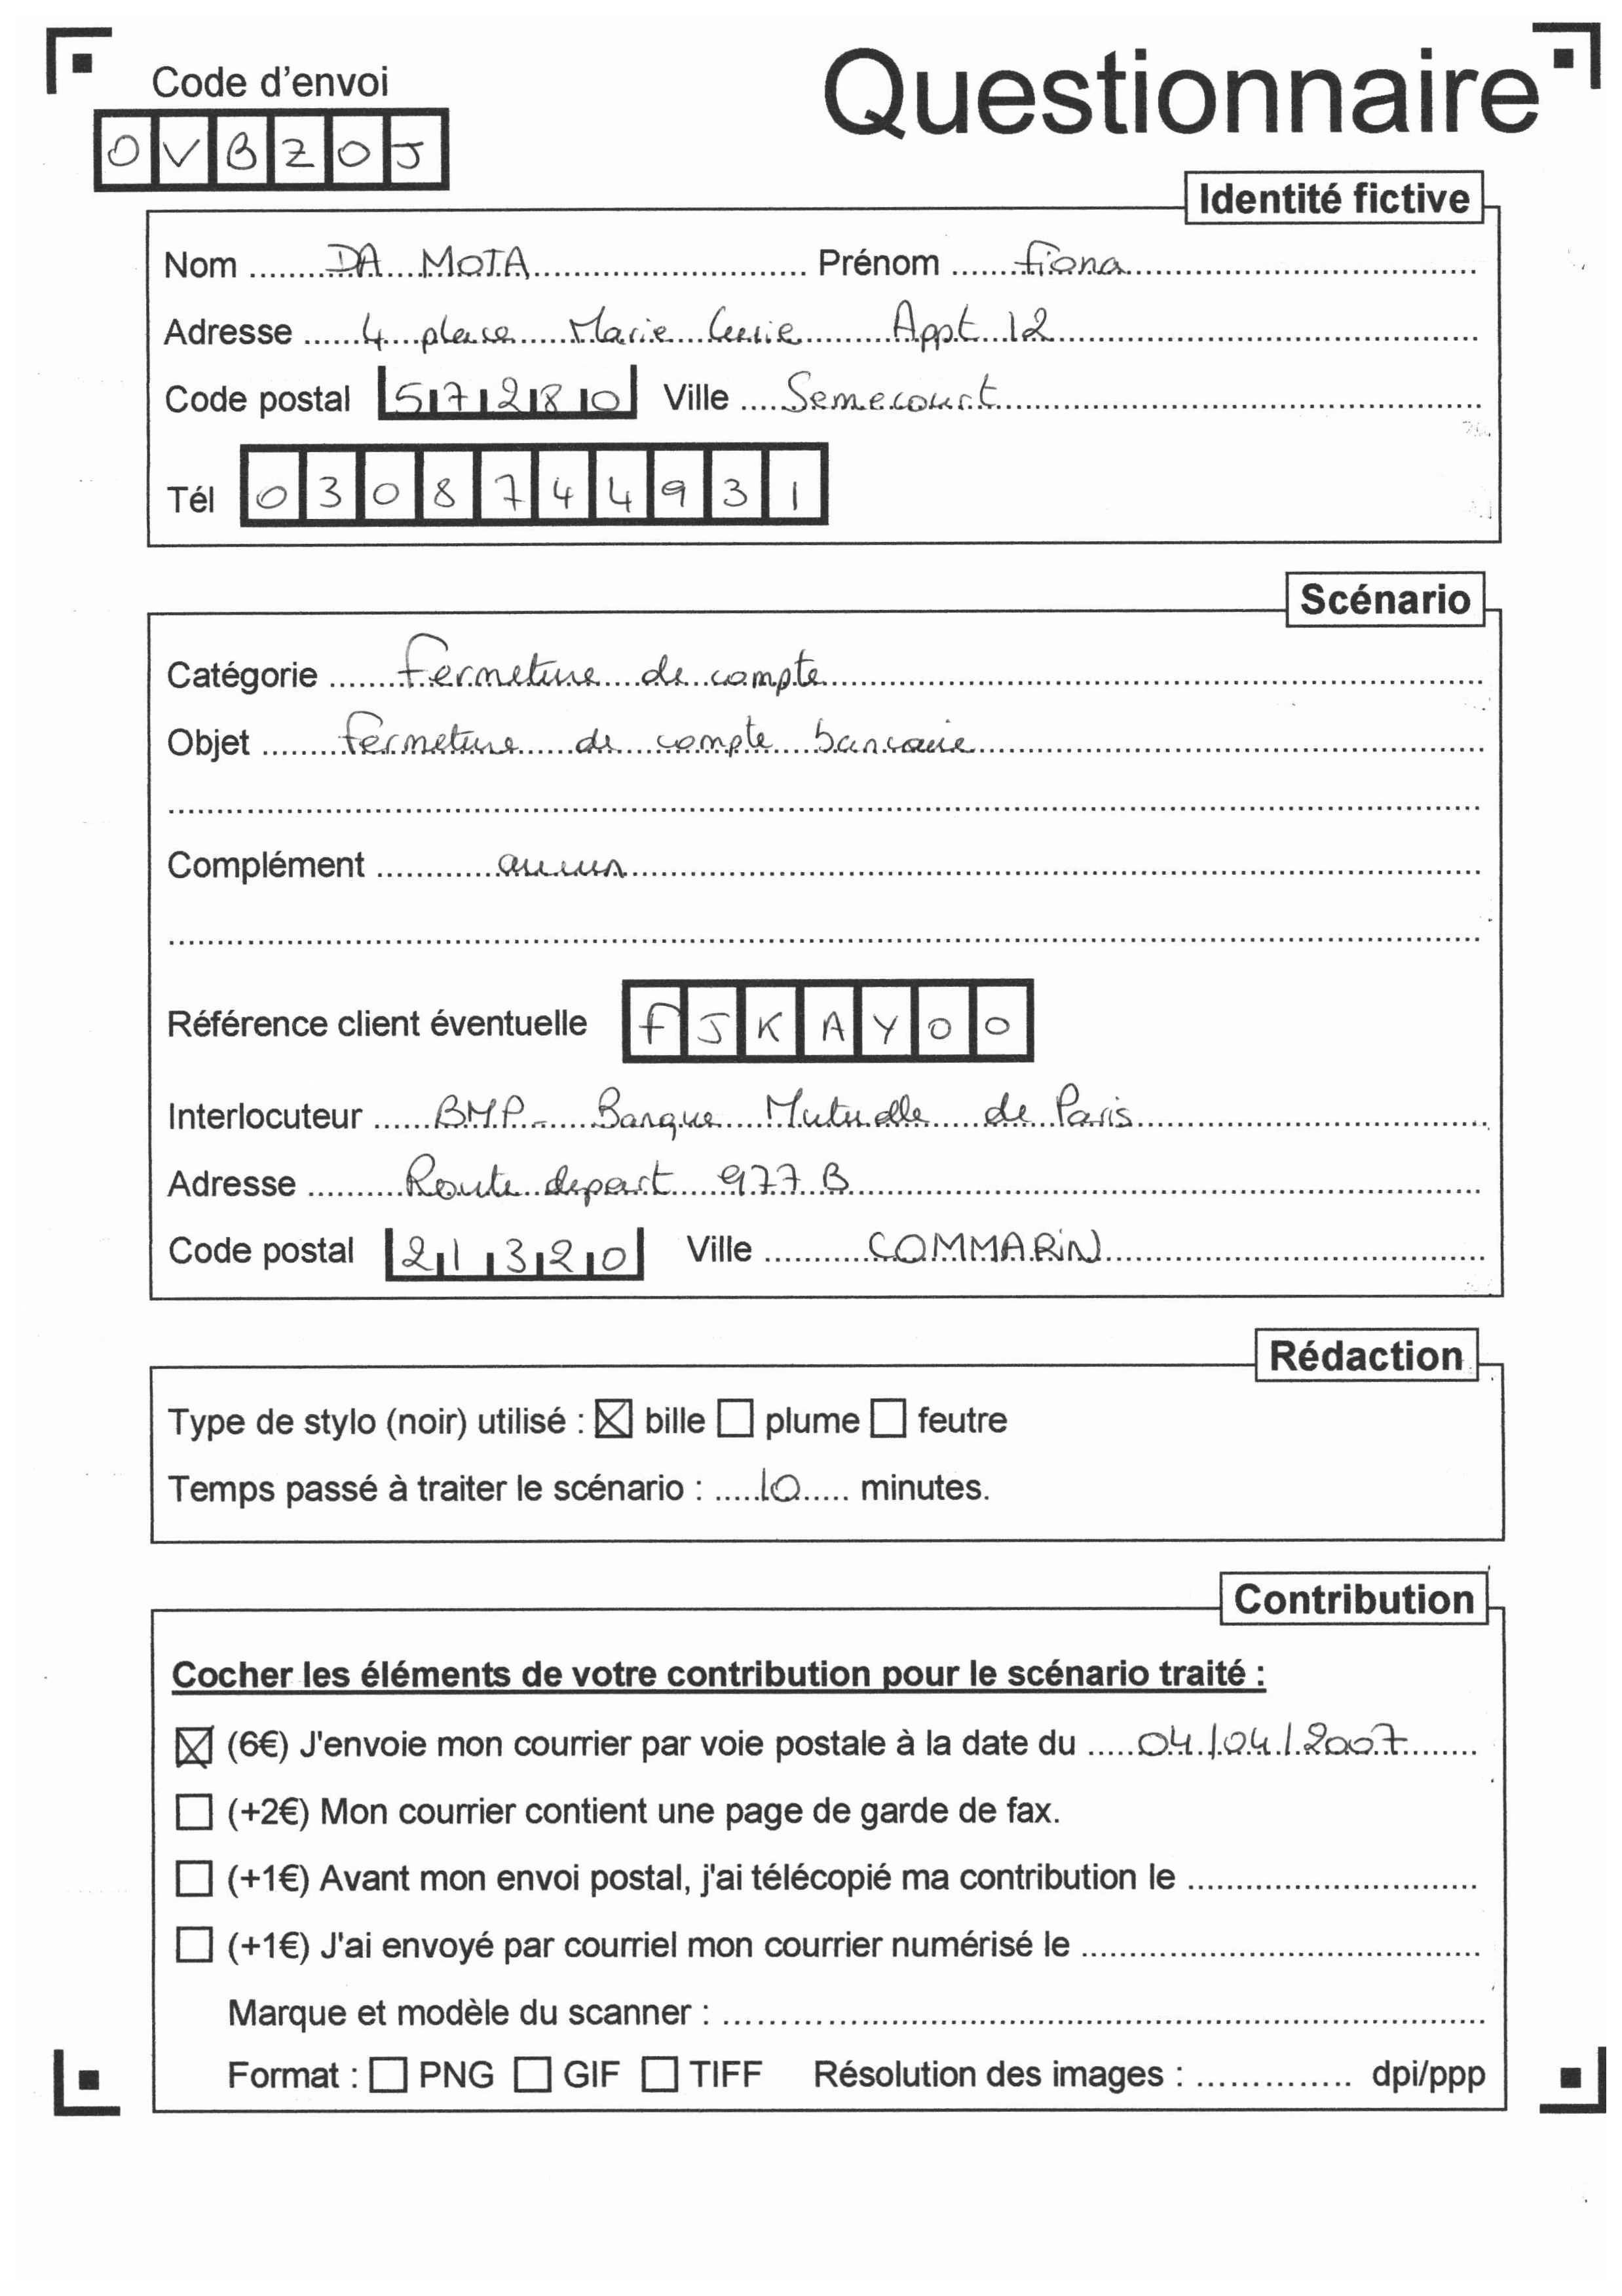 Questionnaire
Code d'envoi
OVBZOJ
Identité fictive
Nom ........DA MOTA........ Prénom ......fiona......
Adresse ......4 place Marie Curie Appt 12......
Code postal 57280 Ville ....Semecourt....
Tél 0308744931
Scénario
Catégorie ......Fermeture de compte......
Objet ......fermeture de compte bancaire......
Complément ......aucun......
Référence client éventuelle FJKAY00
Interlocuteur ......BMP - Banque Mutuelle de Paris......
Adresse ......Route depart 977 B......
Code postal 21320 Ville ......COMMARIN......
Rédaction
Type de stylo (noir) utilisé : ☒ bille ☐ plume ☐ feutre
Temps passé à traiter le scénario : .....10..... minutes.
Contribution
Cocher les éléments de votre contribution pour le scénario traité :
☒ (6€) J'envoie mon courrier par voie postale à la date du .....04/04/2007.....
☐ (+2€) Mon courrier contient une page de garde de fax.
☐ (+1€) Avant mon envoi postal, j'ai télécopié ma contribution le ..............................
☐ (+1€) J'ai envoyé par courriel mon courrier numérisé le ..............................
Marque et modèle du scanner : ..............................
Format : ☐ PNG ☐ GIF ☐ TIFF Résolution des images : .............. dpi/ppp